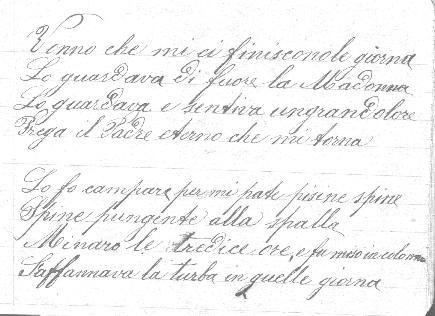 Vonno che mi ci finiscono le giorna
Lo guardava di fuore la Madonna
Lo guardava e sentiva un gran dolore
Prega il Padre eterno che mi torna
Lo fo campare per mi pati pisine spine
Spine pungente alla spalla
Minaro le tredice ore, e fu miso in colonna
S'affannava la turba in quelle giorna